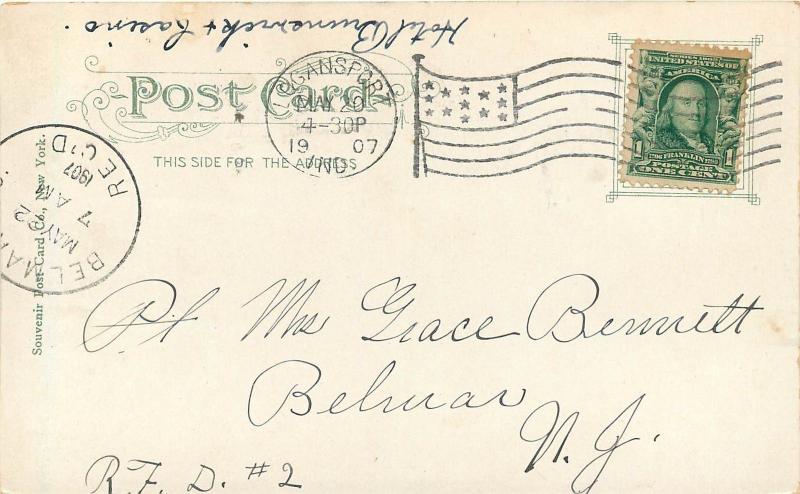 Hotel Brunswick + Casino.
POST CARD
THIS SIDE FOR THE ADDRESS
LOGANSPORT
MAY 20
4-30P
19 07
IND.
SERIES 1902
UNITED STATES OF
AMERICA
1706 FRANKLIN 1790
1 POSTAGE 1
ONE CENT
BELMAR
MAY 22
7 AM
1907
REC'D
Souvenir Post Card Co., New York.
Miss Grace Bennett
Belmar
N. J.
R. F. D. #2